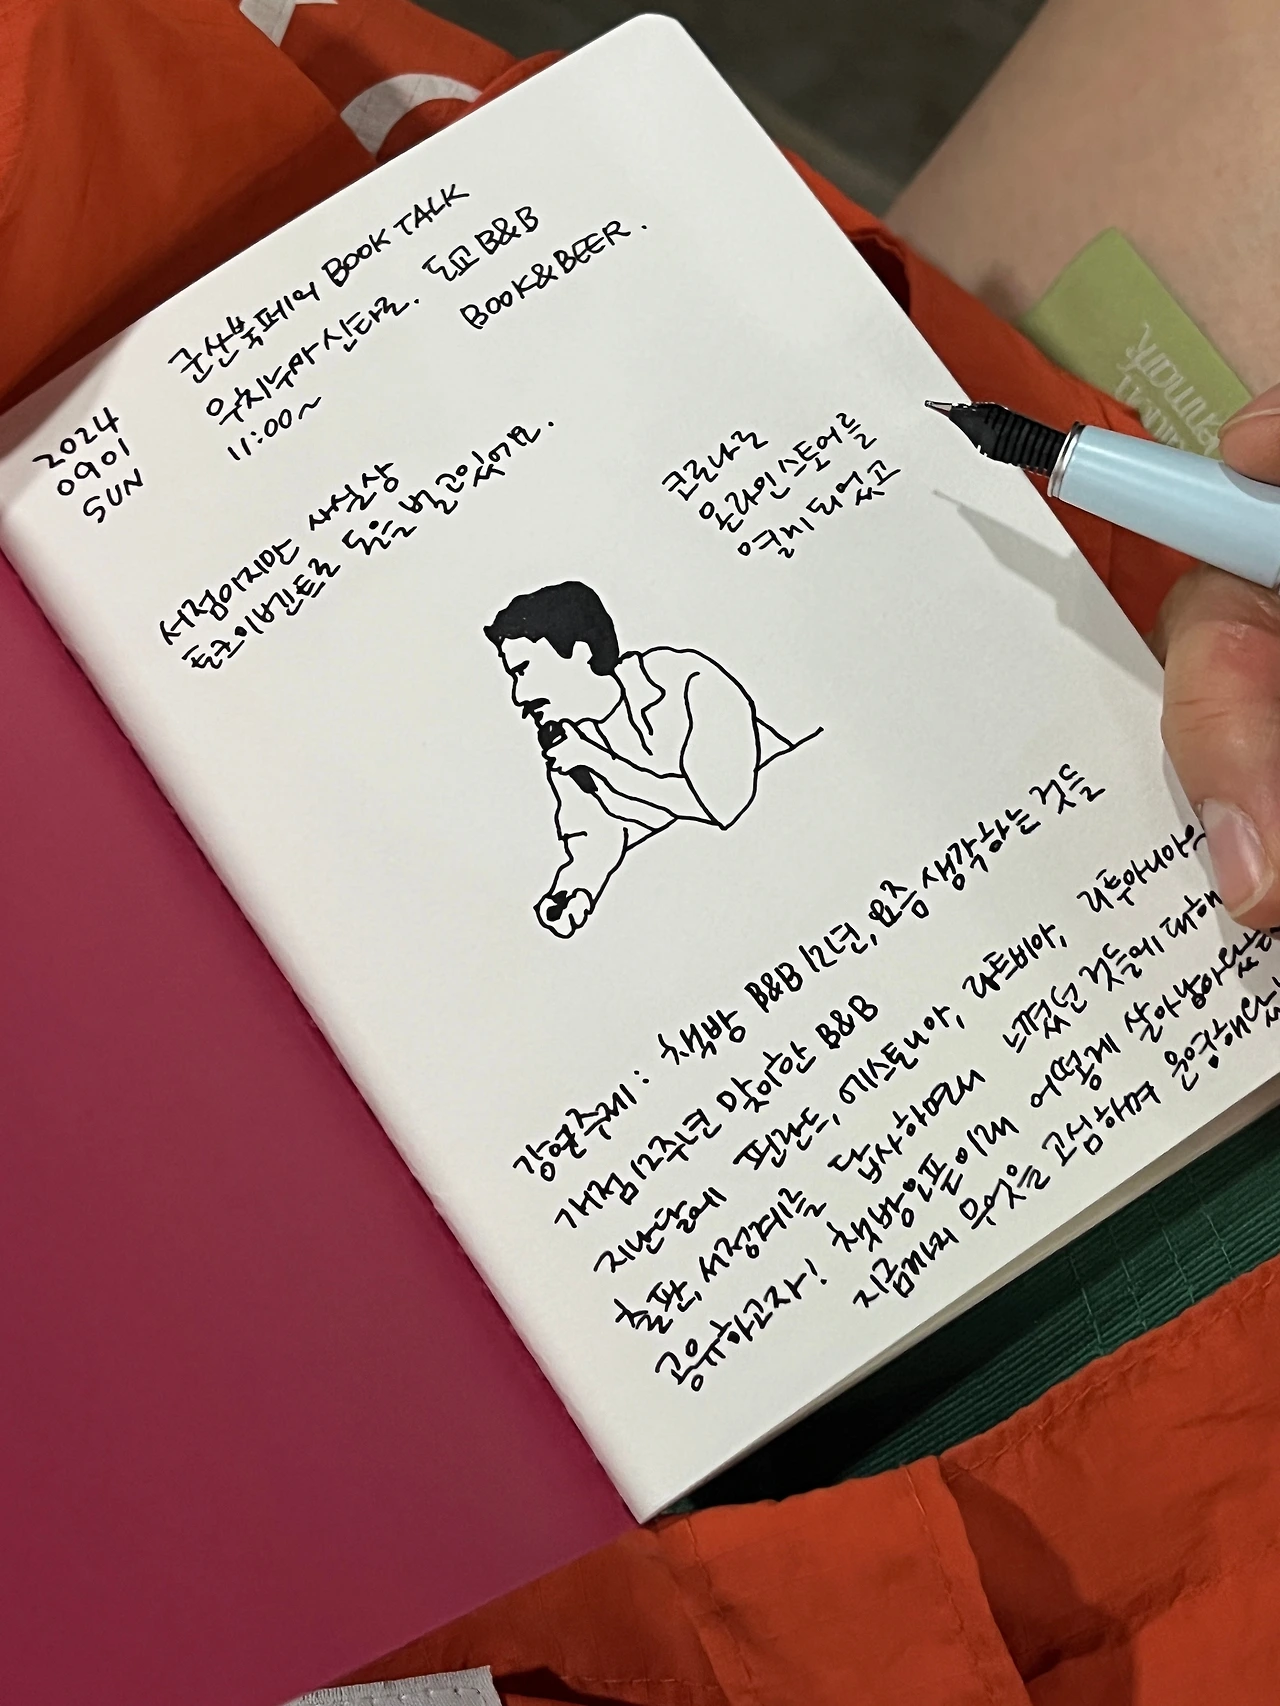 2024
0901
SUN
군산북페어 BOOK TALK
우치누마 신타로. 도쿄 B&B
BOOK&BEER.
11:00~
서점이지만 사실상
토크이벤트로 돈을 벌고있어요.
코로나로
온라인스토어를
열게되었고
강연주제: 책방 B&B 12년, 요즘 생각하는 것들
개점12주년 맞이한 B&B
지난달에 핀란드, 에스토니아, 라트비아, 리투아니아의
출판, 서점계를 답사하면서 느꼈던 것들에 대해
공유하고자! 책방오픈이래 어떻게 살아남아왔는
지금까지 무엇을 고심하며 운영해왔는